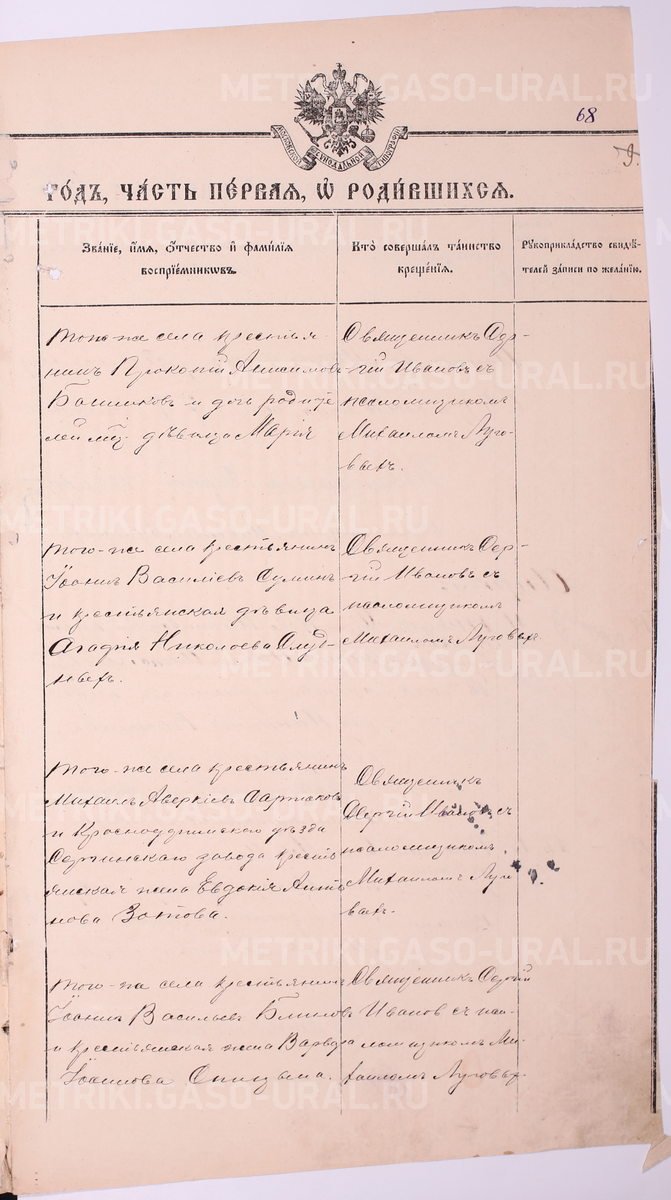 METRIKI.GASO-URAL.RU
68
МОСКОВСКОЙ СѴНОДАЛЬНОЙ ТИПОГРАФІИ
9.
го́дъ, ча́сть пе́рвая, ѡ҆ роди́вшихся.
Зва́нїе, и҆́мѧ, ѻ҆́тчество и҆ фами́лїѧ
воспрїе́мникѡвъ.
Кто̀ соверша́лъ та́инство
креще́нїѧ.
Рꙋкоприкла́дство свидѣ́-
телей за́писи по жела́нїю.
того-же села крестья-
нинъ Прокопій Анисимовъ
и дочь родите
лей дѣвица Марія
Священникъ Сер-
гій Ивановъ съ
псаломщикомъ
Михаиломъ Луго-
выхъ.
METRIKI.GASO-URAL.RU
того-же села крестьянинъ
Іоаннъ Василіевъ Суминъ
и крестьянская дѣвица
Агафія Николаева
ныхъ.
Священникъ Сер-
гій Ивановъ съ
псаломщикомъ
Михаиломъ Луговыхъ.
METRIKI.GASO-URAL.RU
того-же села крестьянинъ
Михаилъ Аверкіевъ
и Красноуфимскаго уѣзда
Сергинскаго завода кресть
янская жена Евдокія Анто
нова Зотова.
Священникъ
Сергій Ивановъ съ
псаломщикомъ
Михаиломъ Луго
выхъ.
METRIKI.GASO-URAL.RU
того-же села крестьянинъ
Іоаннъ Васильевъ Блиновъ
и крестьянская жена Варвара
Іоаннова Спицына.
Священникъ Сергій
Ивановъ съ пса-
ломщикомъ Ми-
хаиломъ Луговыхъ.
METRIKI.GASO-URAL.RU